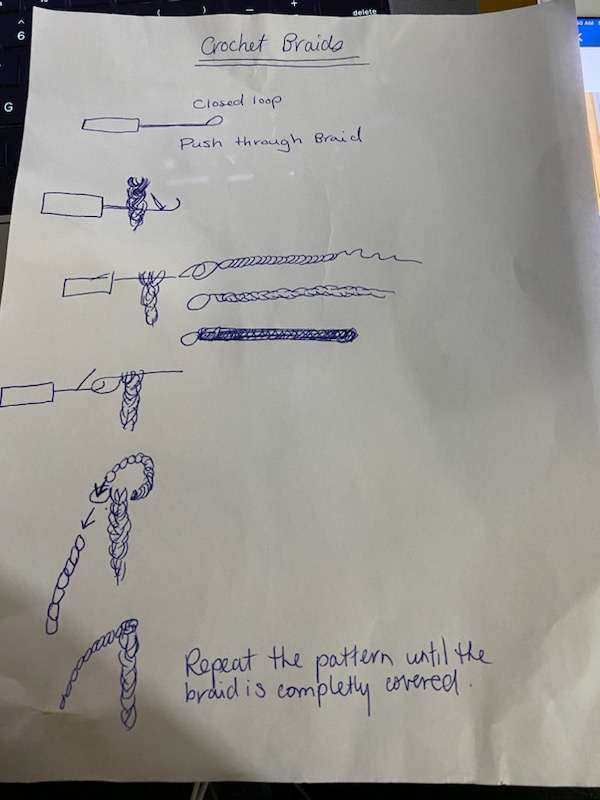 delete
6
G
Crochet Braids
Closed loop
Push through Braid
Repeat the pattern until the
braid is completly covered.